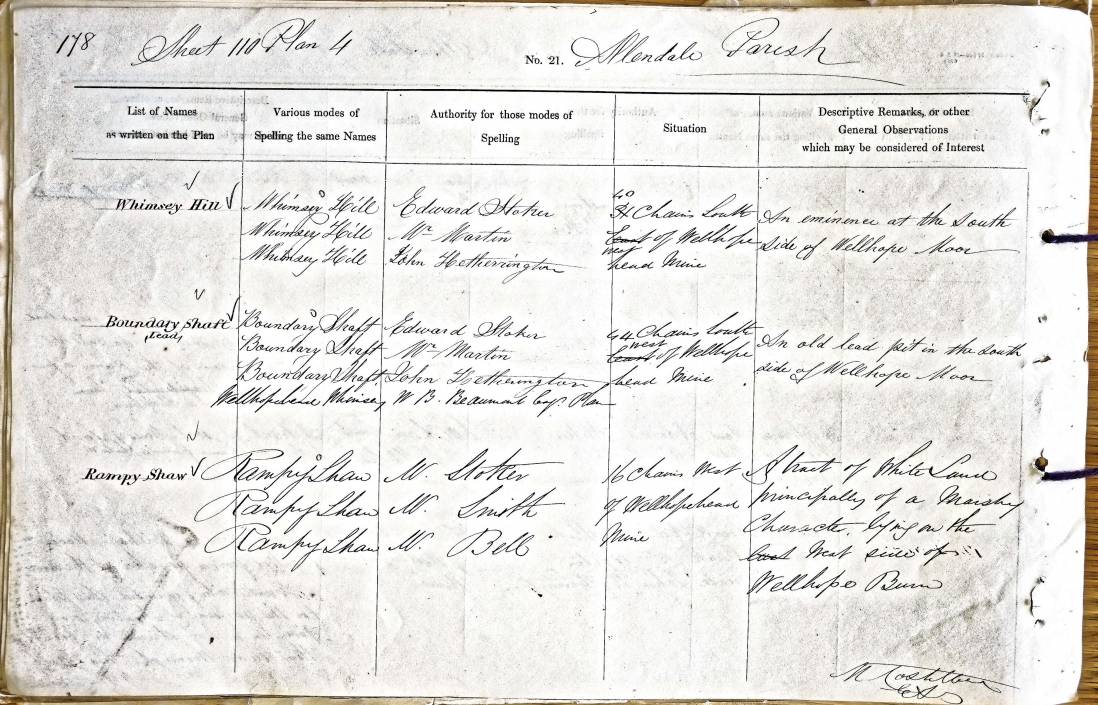 178 Sheet 110 Plan 4 No. 21. Allendale Parish
List of Names
as written on the Plan
Various modes of
Spelling the same Names
Authority for those modes of
Spelling
Situation
Descriptive Remarks, or other
General Observations
which may be considered of Interest
Whimsey Hill
Whimsey Hill
Whimsey Hill
Whimsey Hill
Edward Stoker
Mr Martin
John Hetherington
Chains South
East of Wellhope
West
head Mine
An eminence at the South
side of Wellhope Moor
Boundary Shaft
(Lead)
Boundary Shaft
Boundary Shaft
Boundary Shaft
Wellhopehead Whimsey
Edward Stoker
Mr Martin
John Hetherington
W. B. Beaumont Esqr. Plan
44 Chains South
west
East of Wellhope
head Mine
An old lead pit in the south
side of Wellhope Moor
Rampy Shaw
Rampy Shaw
Rampy Shaw
Rampy Shaw
W. Stoker
W. Smith
W. Bell
16 Chains West
of Wellhopehead
Mine
A tract of White Land
principally of a Marshy
Character, lying on the
East West side of
Wellhope Burn